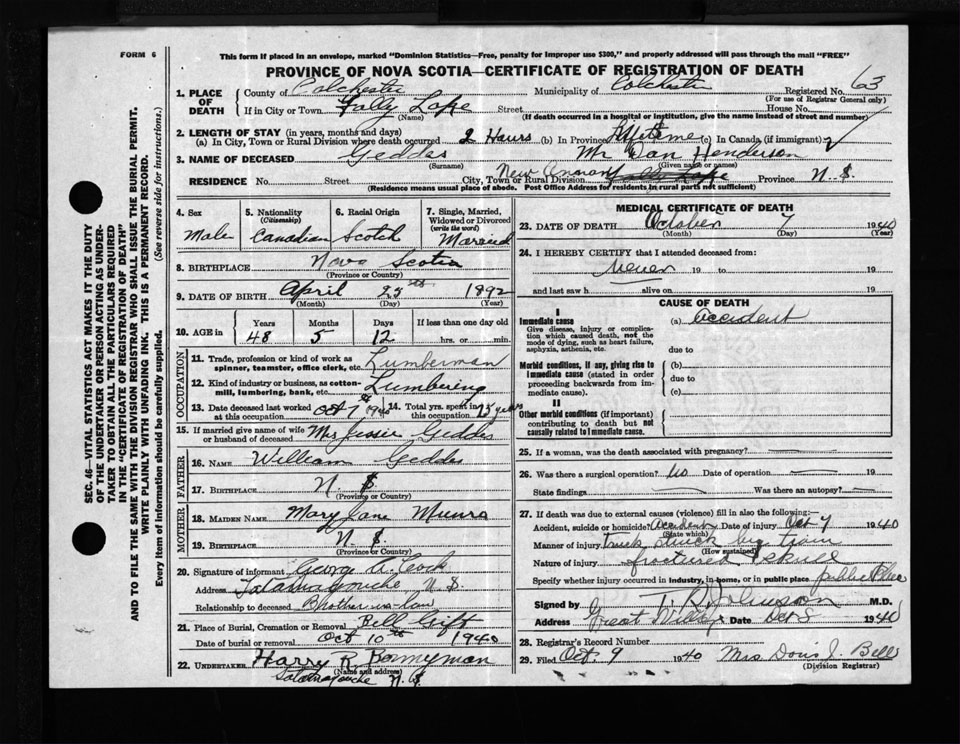 FORM 6
This form if placed in an envelope, marked "Dominion Statistics—Free, penalty for improper use $300," and properly addressed will pass through the mail "FREE"
PROVINCE OF NOVA SCOTIA—CERTIFICATE OF REGISTRATION OF DEATH
1. PLACE OF DEATH
County of Colchester Municipality of Colchester Registered No. 63
(For use of Registrar General only)
If in City or Town Folly Lake Street House No.
(Name) (If death occurred in a hospital or institution, give its name instead of street and number)
2. LENGTH OF STAY (in years, months and days)
(a) In City, Town or Rural Division where death occurred 2 Hours (b) In Province Lifetime (c) In Canada (if immigrant)
3. NAME OF DECEASED Geddes Mr Dan Henderson
(Surname) (Given name or names)
RESIDENCE No. Street City, Town or Rural Division New Annan Folly Lake Province N.S.
(Residence means usual place of abode. Post Office Address for residents in rural parts not sufficient)
4. Sex Male
5. Nationality (Citizenship) Canadian
6. Racial Origin Scotch
7. Single, Married, Widowed or Divorced (write the word) Married
8. BIRTHPLACE Nova Scotia
(Province or Country)
9. DATE OF BIRTH April 25th 1892
(Month) (Day) (Year)
10. AGE in Years Months Days If less than one day old
48 5 12 hrs. or min.
OCCUPATION
11. Trade, profession or kind of work as spinner, teamster, office clerk, etc. Lumberman
12. Kind of industry or business, as cotton-mill, lumbering, bank, etc. Lumbering
13. Date deceased last worked at this occupation Oct 7 1940
14. Total yrs. spent in this occupation years
15. If married give name of wife or husband of deceased Mrs Jessie Geddes
FATHER
16. NAME William Geddes
17. BIRTHPLACE N.S.
(Province or Country)
MOTHER
18. MAIDEN NAME Mary Jane Munro
19. BIRTHPLACE N.S.
(Province or Country)
20. Signature of informant George A.
Address Tatamagouche N.S.
Relationship to deceased Brother in law
21. Place of Burial, Cremation or Removal Bell Grift
Date of burial or removal Oct 10th 1940
22. UNDERTAKER Harry R. Bonnyman
(Name and address)
Tatamagouche N.S.
MEDICAL CERTIFICATE OF DEATH
23. DATE OF DEATH October 7 1940
(Month) (Day) (Year)
24. I HEREBY CERTIFY that I attended deceased from:
never 19 to 19
and last saw h alive on 19
CAUSE OF DEATH
I
Immediate cause (a) accident
Give disease, injury or complication which caused death, not the mode of dying, such as heart failure, asphyxia, asthenia, etc.
due to
Morbid conditions, if any, giving rise to immediate cause (stated in order proceeding backwards from immediate cause).
(b)
due to
(c)
II
Other morbid conditions (if important) contributing to death but not causally related to immediate cause.
25. If a woman, was the death associated with pregnancy?
26. Was there a surgical operation? No Date of operation 19
State findings Was there an autopsy?
27. If death was due to external causes (violence) fill in also the following:
Accident, suicide or homicide? Accident Date of injury Oct 7 1940
(State which)
Manner of injury Truck struck by train
(How sustained)
Nature of injury fractured skull
Specify whether injury occurred in industry, in home, or in public place public place
Signed by T. R. Johnson M.D.
Address Great Village Date Oct 8 1940
28. Registrar's Record Number
29. Filed Oct. 9 1940 Mrs. Doris J. Bell
(Division Registrar)
SEC. 46—VITAL STATISTICS ACT MAKES IT THE DUTY
OF THE UNDERTAKER OR PERSON ACTING AS UNDER-
TAKER TO OBTAIN ALL THE PARTICULARS REQUIRED
IN THE "CERTIFICATE OF REGISTRATION OF DEATH"
AND TO FILE THE SAME WITH THE DIVISION REGISTRAR WHO SHALL ISSUE THE BURIAL PERMIT.
WRITE PLAINLY WITH UNFADING INK. THIS IS A PERMANENT RECORD.
Every item of information should be carefully supplied. (See reverse side for instructions.)